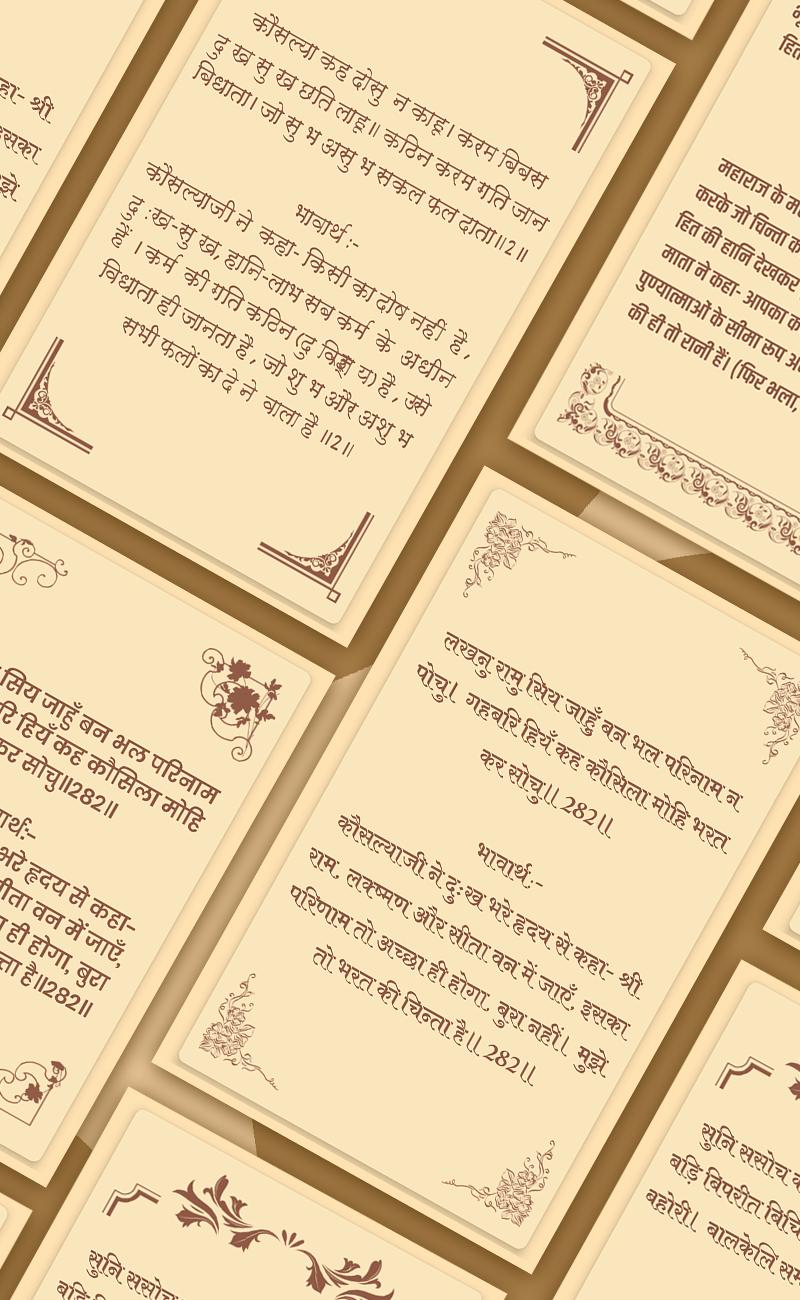 कहा- श्री
इसका
मुझे
कौसल्या कह दोसु न काहू। करम बिबस
दु ख सु ख छति लाहू॥ कठिन करम गति जान
बिधाता। जो सु भ असु भ सकल फल दाता॥2॥
भावार्थ:-
कौसल्याजी ने कहा- किसी का दोष नहीं है,
दु :ख-सु ख, हानि-लाभ सब कर्म के अधीन
हैं। कर्म की गति कठिन (दु र्विज्ञे य) है, उसे
विधाता ही जानता है, जो शु भ और अशु भ
सभी फलों का दे ने वाला है ॥2॥
हित
महाराज के
करके जो चिन्ता
हित की हानि देखकर
माता ने कहा- आपका
पुण्यात्माओं के सीमा रूप
की ही तो रानी हैं। (फिर भला,
सिय जाहुँ बन भल परिनाम
हियँ कह कौसिला मोहि
कर सोचु॥282॥
भरे हृदय से कहा-
सीता वन में जाएँ,
ही होगा, बुरा
है॥282॥
लखनु रामु सिय जाहुँ बन भल परिनाम न
पोचु। गहबरि हियँ कह कौसिला मोहि भरत
कर सोचु॥ 282॥
भावार्थ:-
कौसल्याजी ने दुःख भरे हृदय से कहा- श्री
राम, लक्ष्मण और सीता वन में जाएँ, इसका
परिणाम तो अच्छा ही होगा, बुरा नहीं। मुझे
तो भरत की चिन्ता है॥ 282॥
सुनि ससोच
बड़ि
सुनि ससोच
बड़ि बिपरीत
बहोरी। बालकेलि सम